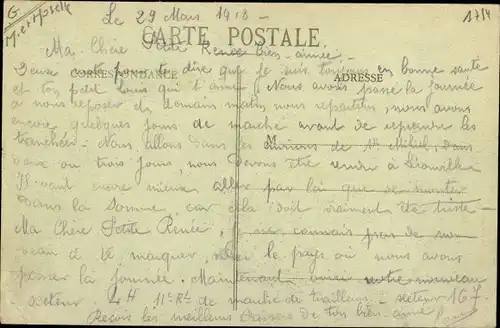 Le 29 Mars 1918 -
1754
CARTE POSTALE
Ma Chère Petite Renée bien aimée -
CORRESPONDANCE
ADRESSE
Deux mots pour te dire que je suis toujours en bonne santé
et ton petit Louis qui t'aime. Nous avons passé la journée
à nous reposer et demain matin, nous repartons, nous avons
encore quelques jours de marche avant de reprendre les
tranchées - Nous allons dans les environs de St Mihiel, dans
deux ou trois jours, nous devons être rendu à
Il vaut encore mieux aller par là que de
dans la Somme car cela doit vraiment être triste -
Ma Chère Petite Renée, je ne connais pas de
beau à te marquer, le pays où nous avons
passer la journée. Maintenant notre nouveau
secteur 4H 11e Rt de marche de tirailleurs - secteur 167.
Reçois les meilleurs baisers de ton bien aimé Louis